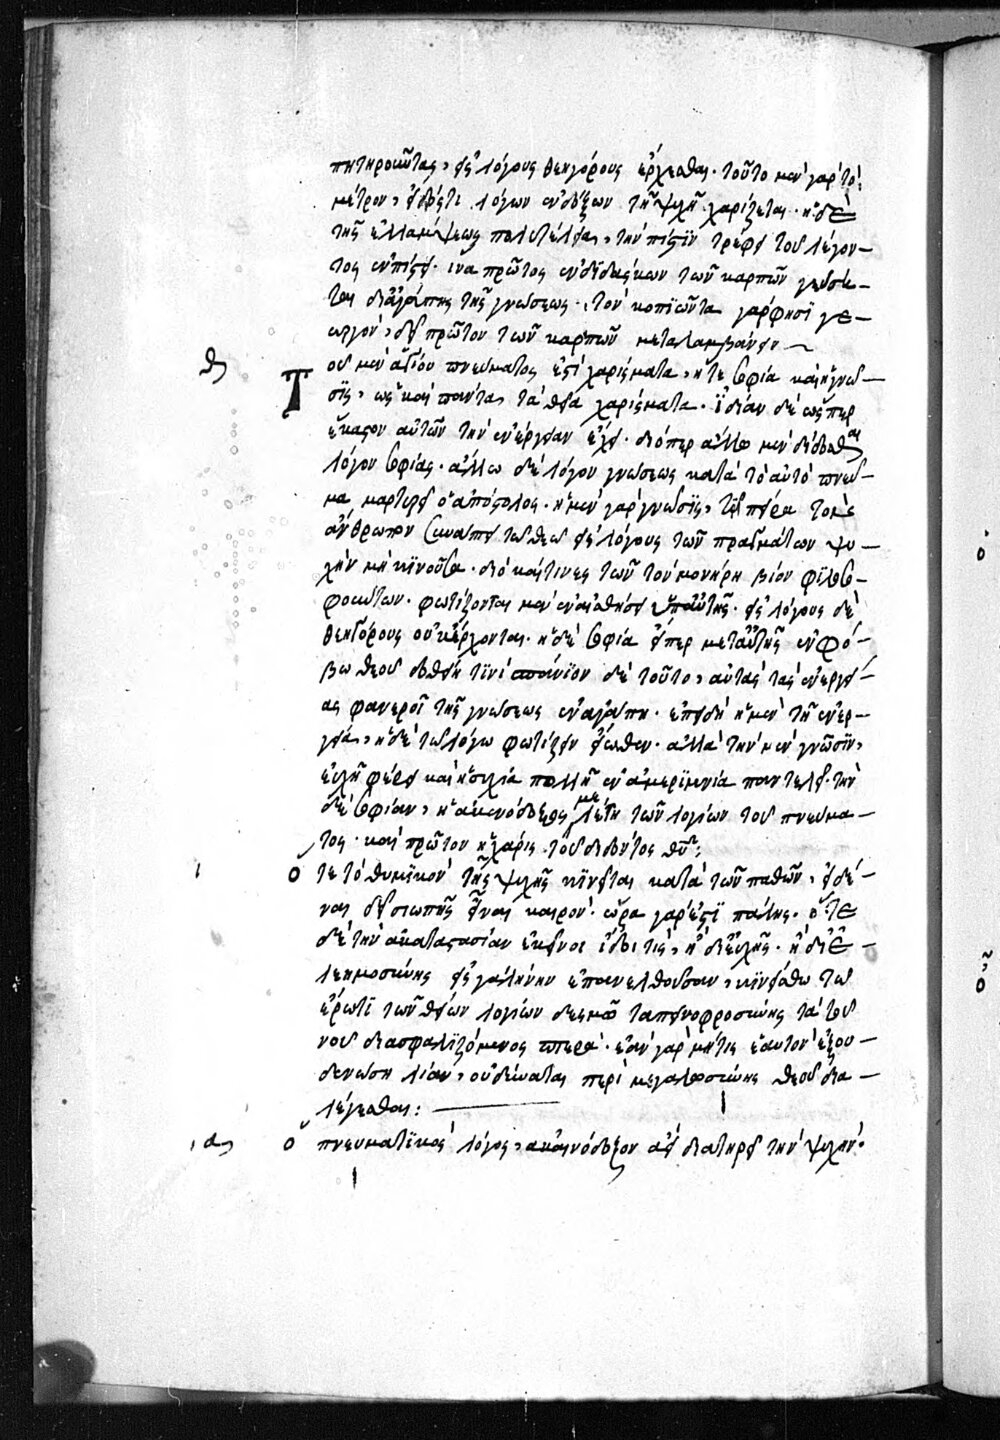 πητηροῦντας, εἰς λόγους θεηγόρους ἔρχεσθαι. τοῦτο μὲν γὰρ τὸ
μέτρον, οὐδέτι λόγων ἐνδόξων τῇ ψυχῇ χαρίζεται. ἡ δὲ
τῆς ἐλλάμψεως πολυτέλεια, τὴν πίστϊν τρέφει τοῦ λέγον-
τος ἐν πίστει. ἵνα πρῶτος ἐν διδάσκων τῶν καρπῶν γεύση-
ται δι' ἀγάπης τῆς γνώσεως. τὸν κοπϊῶντα γάρ φησϊ γε-
ωργὸν, δεῖ πρῶτον τῶν καρπῶν μεταλαμβάνειν
θ Τοῦ μὲν ἁγίου πνεύματος ἐστὶ χαρίσματα, ἥ τε σοφία καὶ ἡ γνῶ-
σϊς, ὡς καὶ πάντα τὰ θεῖα χαρίσματα. ἰδίαν δὲ ὥσπερ
ἕκαστον αὐτῶν τὴν ἐνέργειαν ἔχει. διόπερ ἄλλω μὲν δίδοσθαι
λόγον σοφίας. ἄλλω δὲ λόγον γνώσεως κατὰ τὸ αὐτὸ πνεῦ-
μα μαρτυρεῖ ὁ ἀπόστολος. ἡ μὲν γὰρ γνῶσϊς, τῇ πείρα τὸν
ἄνθρωπον συνάπτει τῶ θεῶ εἰς λόγους τῶν πραγμάτων ψυ-
χὴν μὴ κϊνοῦσα. διὸ καί τινες τῶν τὸν μονήρη βίον φϊλοσο-
φούντων. φωτίζονται μὲν ἐν αἰσθήσει ὑπ' αὐτῆς. εἰς λόγους δὲ
θεηγόρους οὐκ ἔρχονται. ἡ δὲ σοφία εἴπερ μετ' αὐτῆς ἐν φό-
βω θεοῦ δοθείη τϊνὶ σπάνϊον δὲ τοῦτο, αὐτὰς τὰς ἐνεργεί-
ας φανεροῖ τῆς γνώσεως ἐν ἀγάπη. ἐπειδὴ ἡ μὲν τῆ ἐνερ-
γεία, ἡ δὲ τῶ λόγω φωτίζειν εἴωθεν. ἀλλὰ τὴν μὲν γνῶσϊν,
εὐχὴ φέρει καὶ ἡσυχία πολλῆ ἐν ἀμερϊμνία παντελεῖ. τὴν
δὲ σοφίαν, ἡ ἀκενόδοξος μελέτη τῶν λογίων τοῦ πνεύμα-
τος. καὶ πρῶτον ἡ χάρις τοῦ διδόντος θυ:
ι Ὅτε τὸ θυμϊκὸν τῆς ψυχῆς κϊνεῖται κατὰ τῶν παθῶν, εἰδέ-
ναι δεῖ σιωπῆς εἶναι καιρόν. ὥρα γὰρ ἐστϊ πάλης. ὅτε
δὲ τὴν ἀκαταστασίαν ἐκείνοι ἴδοι τις, ἢ δι' εὐχῆς. ἢ δι' ἐ-
λεημοσύνης εἰς γαλήνην ἐπανελθοῦσαν, κϊνείσθω τῶ
ἔρωτϊ τῶν θείων λογίων δεσμῶ ταπεινοφροσύνης τὰ τοῦ
νοῦ διασφαλϊζόμενος πτερά. ἐὰν γὰρ μή τις ἑαυτὸν ἐξου-
δενώση λίαν, οὐ δύναται περὶ μεγαλωσύνης θεοῦ δια-
λέγεσθαι:
ια Ὁ πνευματϊκὸς λόγος, ἀκενόδοξον ἀεὶ διατηρεῖ τὴν ψυχὴν.